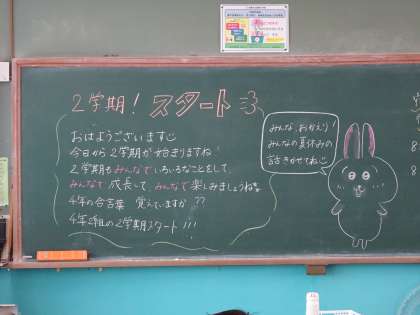 2学期! スタート
おはようございます
今日から2学期が始まりますね!
2学期もみんなでいろいろなことをして、
みんなで成長して、みんなで楽しみましょうね。
4年の合言葉 覚えていますか??
4年2組の2学期スタート!!!
みんな、おかえり!
みんなの夏休みの
話きかせてね
8
8